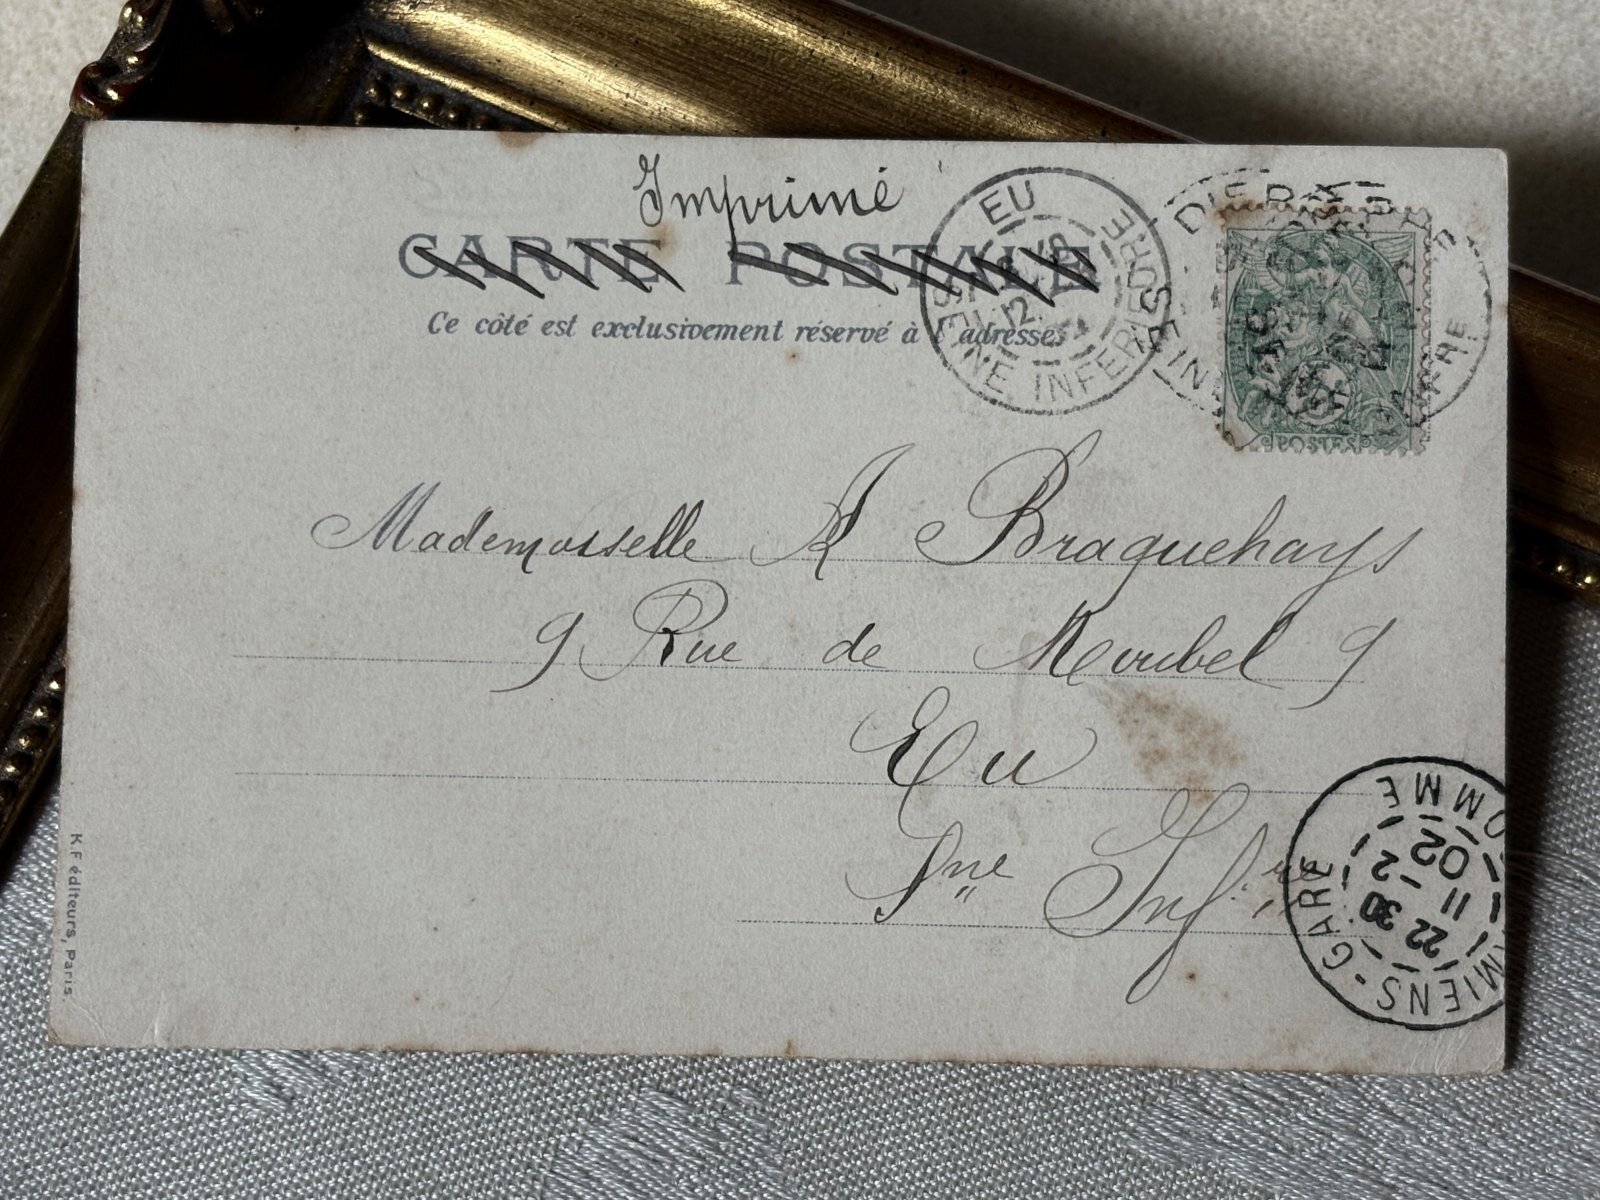 Imprimé
CARTE POSTALE
Ce côté est exclusivement réservé à l'adresse
EU
SEINE INFERIEURE
12
DIEPPE
SEINE IN
POSTES
Mademoiselle A Braquehays
9 Rue de 9
Eu
Sne Infre
AMIENS-GARE
SOMME
22 30
11-2
02
K.F éditeurs, Paris.